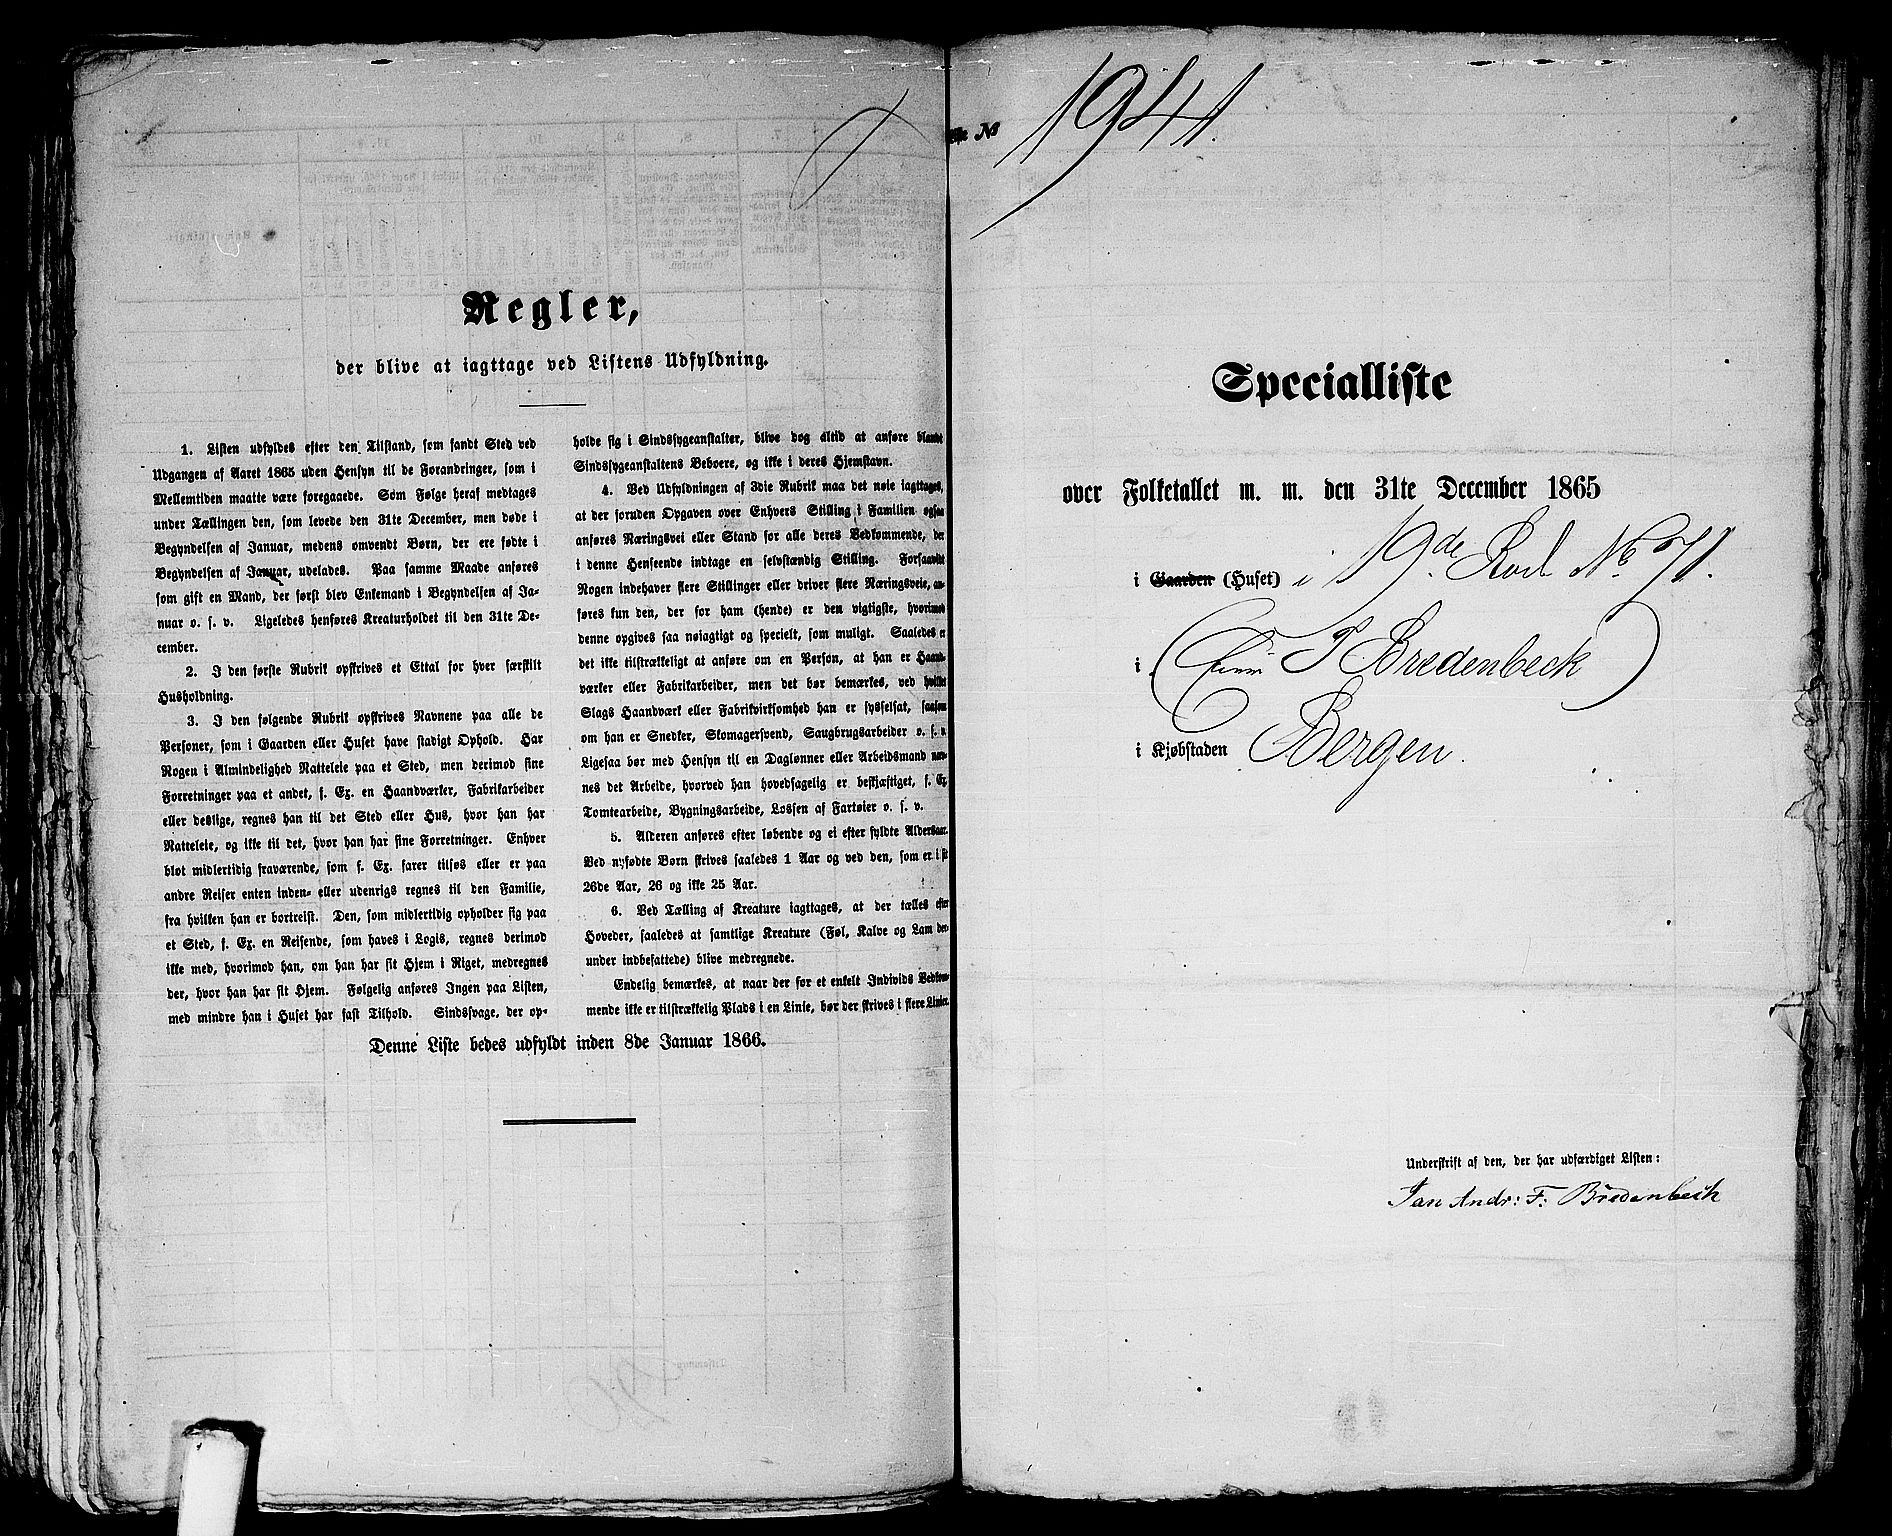 Regler,
der blive at iagttage ved Listens Udfyldning.
1. Listen udfyldes efter den Tilstand, som fandt Sted ved
Udgangen af Aaret 1865 uden Hensyn til de Forandringer, som i
Mellemtiden maatte være foregaaede. Som Følge heraf medtages
under Tællingen den, som levede den 31te December, men døde i
Begyndelsen af Januar, medens omvendt Børn, der ere fødte i
Begyndelsen af Januar, udelades. Paa samme Maade anføres
som gift en Mand, der først blev Enkemand i Begyndelsen af Ja-
nuar o. s. v. Ligeledes henføres Kreaturholdet til den 31te De-
cember.
2. I den første Rubrik opskrives et Ettal for hver særskilt
Husholdning.
3. I den følgende Rubrik opskrives Navnene paa alle de
Personer, som i Gaarden eller Huset have stadigt Ophold. Har
Nogen i Almindelighed Natteleie paa et Sted, men derimod sine
Forretninger paa et andet, f. Ex. en Haandværker, Fabrikarbeider
eller deslige, regnes han til det Sted eller Hus, hvor han har
Natteleie, og ikke til det, hvor han har sine Forretninger. Enhver
blot midlertidig fraværende, som f. Ex. farer tilsøs eller er paa
andre Reiser enten inden- eller udenrigs regnes til den Familie,
fra hvilken han er bortreist. Den, som midlertidig opholder sig paa
et Sted, f. Ex. en Reisende, som haves i Logis, regnes derimod
ikke med, hvorimod han, om han har sit Hjem i Riget, medregnes
der, hvor han har sit Hjem. Følgelig anføres Ingen paa Listen,
med mindre han i Huset har fast Tilhold. Sindssvage, der op-
holde sig i Sindssygeanstalter, blive dog altid at anføre blandt
Sindssygeanstaltens Beboere, og ikke i deres Hjemstavn.
4. Ved Udfyldningen af 3die Rubrik maa det nøie iagttages,
at der foruden Opgaven over Enhvers Stilling i Familien ogsaa
anføres Næringsvei eller Stand for alle deres Vedkommende, der
i denne Henseende indtage en selvstændig Stilling. Forsaavidt
Nogen indehaver flere Stillinger eller driver flere Næringsveie, an-
føres kun den, der for ham (hende) er den vigtigste, hvorimod
denne opgives saa nøiagtigt og specielt, som muligt. Saaledes er
det ikke tilstrækkeligt at anføre om en Person, at han er Haand-
værker eller Fabrikarbeider, men det bør bemærkes, ved hvilket
Slags Haandværk eller Fabrikvirksomhed han er sysselsat, saasom
om han er Snedker, Skomagersvend, Saugbrugsarbeider o. s. v.
Ligesaa bør med Hensyn til en Daglønner eller Arbeidsmand næv-
nes det Arbeide, hvorved han hovedsagelig er beskjæftiget, f. Ex.
Tomtearbeide, Bygningsarbeide, Lossen af Fartøier o. s. v.
5. Alderen anføres efter løbende og ei efter fyldte Aldersaar.
Ved nyfødte Børn skrives saaledes 1 Aar og ved den, som er i sit
26de Aar, 26 og ikke 25 Aar.
6. Ved Tælling af Kreature iagttages, at der tælles efter
Hoveder, saaledes at samtlige Kreature (Føl, Kalve og Lam der-
under indbefattede) blive medregnede.
Endelig bemærkes, at naar der for et enkelt Individs Vedkom-
mende ikke er tilstrækkelig Plads i en Linie, bør der skrives i flere Linier.
Denne Liste bedes udfyldt inden 8de Januar 1866.
No 1941.
Specialliste
over Folketallet m. m. den 31te December 1865
i Gaarden (Huset) i 19de Rod No 71.
i (Eier J Bredenbeck)
i Kjøbstaden Bergen.
Underskrift af den, der har udfærdiget Listen:
Jan Andr: F: Bredenbech